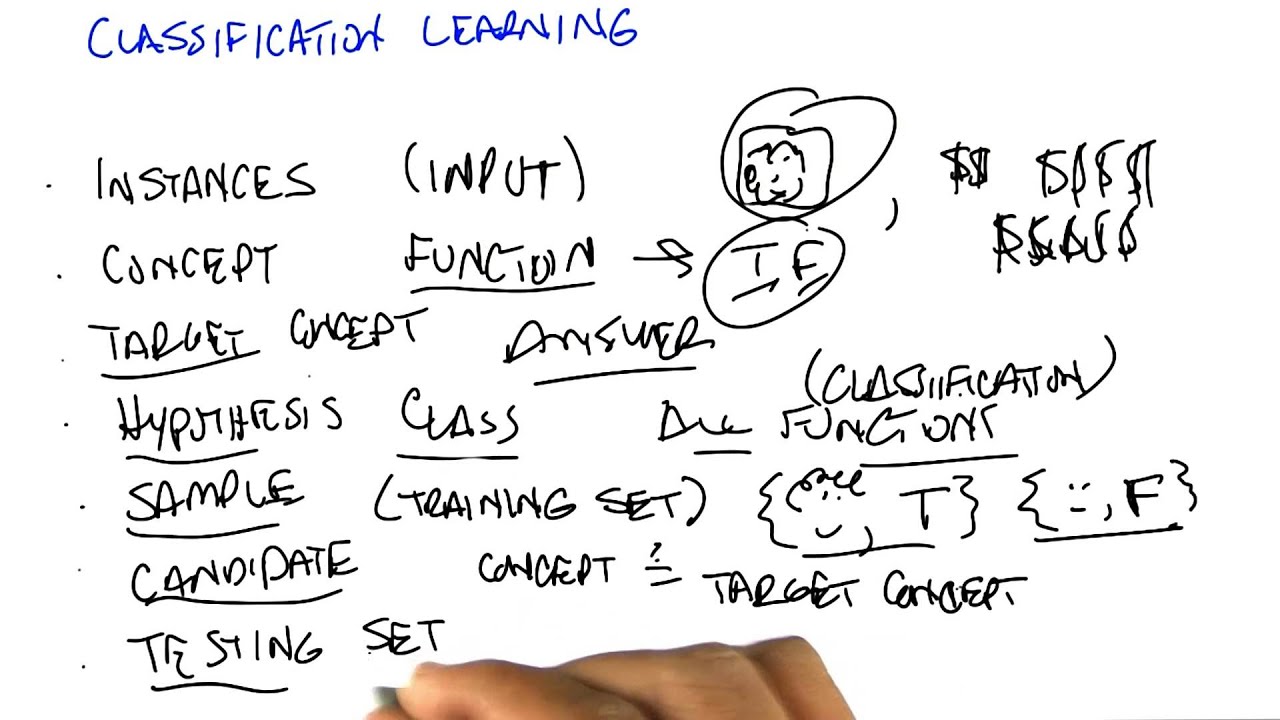 CLASSIFICATION LEARNING
· INSTANCES (INPUT) , $$ $$$$
$$$$$
· CONCEPT FUNCTION → T F
· TARGET CONCEPT ANSWER
(CLASSIIFICATION)
· HYPOTHESIS CLASS ALL FUNCTIONS
· SAMPLE (TRAINING SET) { , T} { , F}
· CANDIDATE CONCEPT ?= TARGET CONCEPT
· TESTING SET